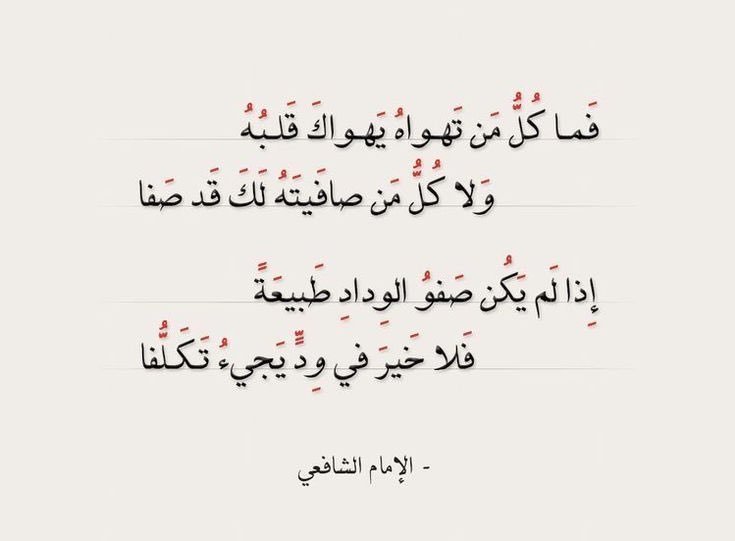 فَمـا كُلُّ مَن تَهـواهُ يَهـواكَ قَلـبُهُ
وَلا كُلُّ مَن صافَيتَهُ لَكَ قَد صَفا
إِذا لَم يَكُن صَفوُ الوِدادِ طَبيعَةً
فَلا خَيرَ في وِدٍّ يَجيءُ تَكَلُّفا
- الإمام الشافعي